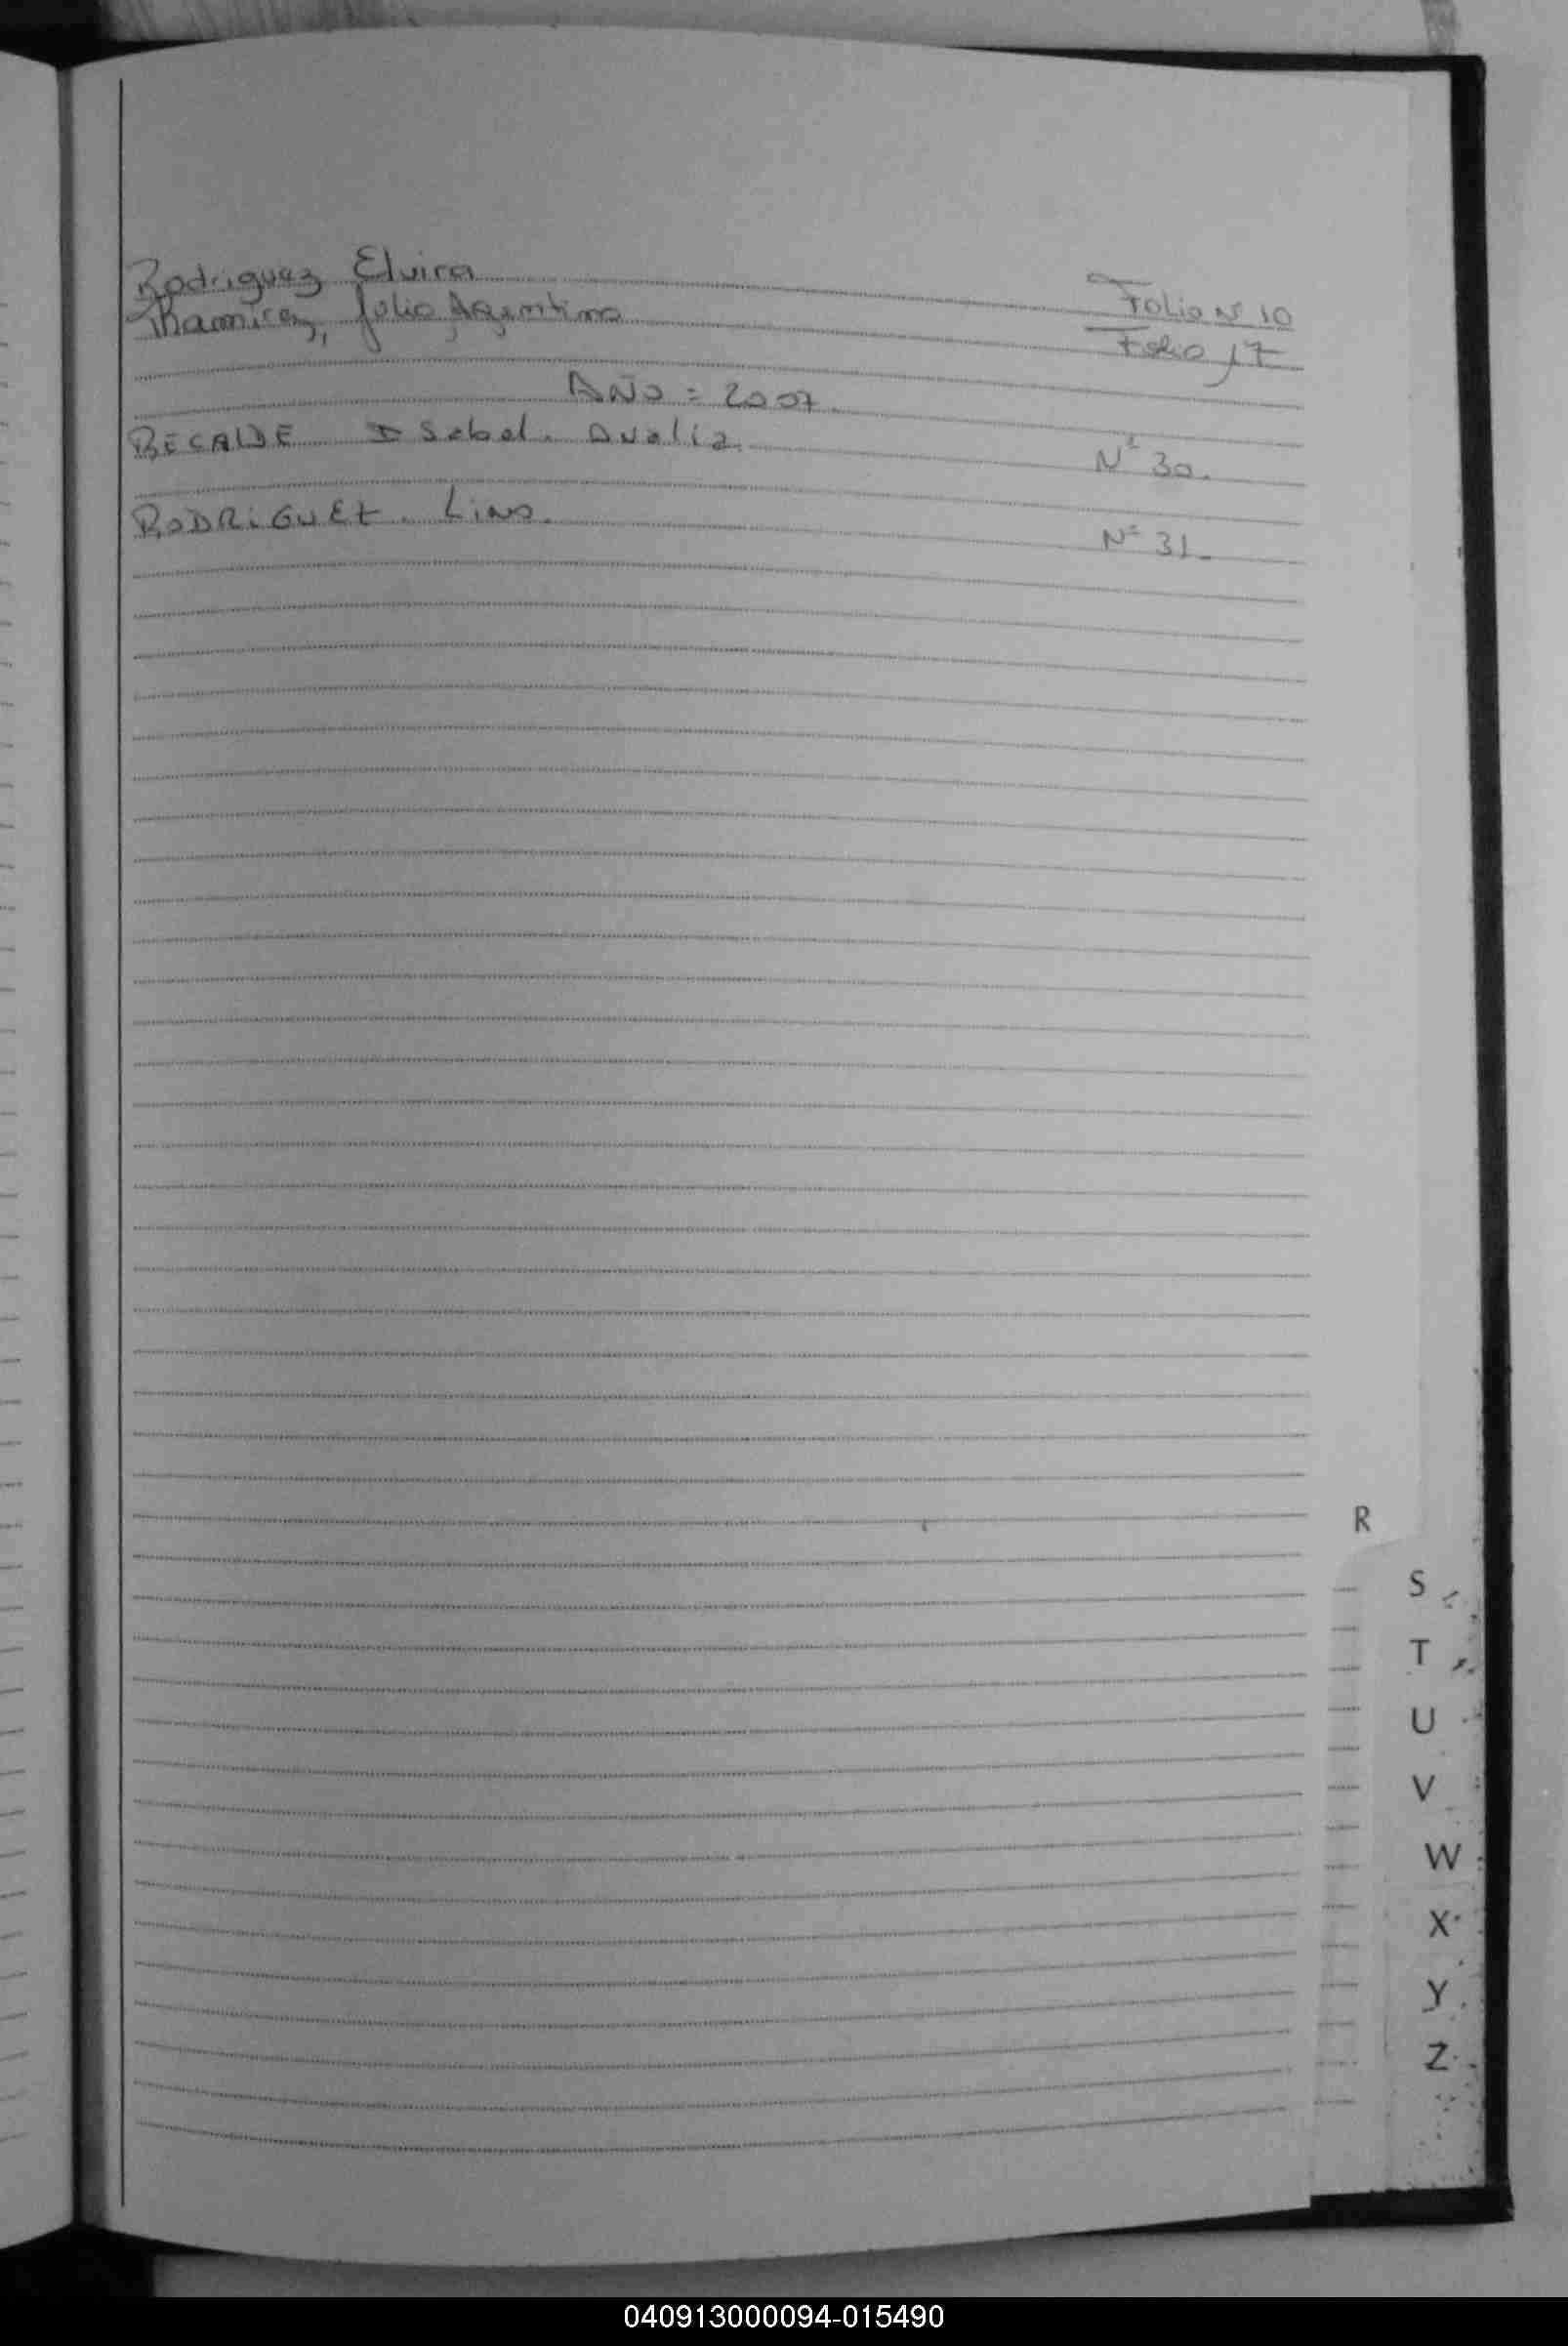 Rodriguez Elvira Folio Nº 10
Rhamirez, Julio Argentino Folio 17
AÑO = 2007.
RECALDE Isabel. Avalia. Nº 30.
RODRIGUEZ. Lino. Nº 31_
R
S
T
U
V
W
X
Y
Z
040913000094-015490